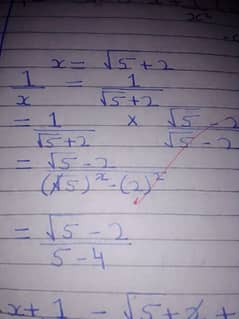 x²
x = √5 + 2
1/x = 1/(√5 + 2)
= 1/(√5 + 2) × (√5 - 2)/(√5 - 2)
= (√5 - 2)/((√5)² - (2)²)
= (√5 - 2)/(5 - 4)
x + 1 - √5 + 2 +